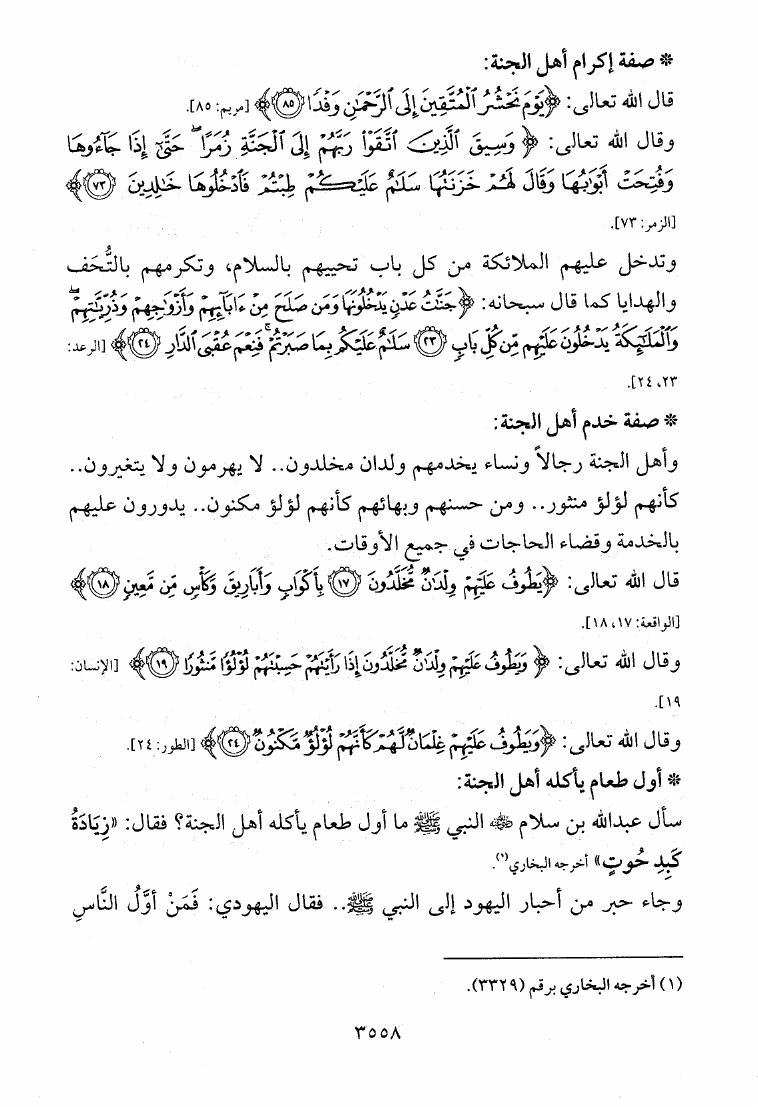 * صفة إكرام أهل الجنة:
قال الله تعالى: ﴿يَوْمَ نَحْشُرُ الْمُتَّقِينَ إِلَى الرَّحْمَٰنِ وَفْدًا ٨٥﴾ [مريم: ٨٥].
وقال الله تعالى: ﴿وَسِيقَ الَّذِينَ اتَّقَوْا رَبَّهُمْ إِلَى الْجَنَّةِ زُمَرًا ۖ حَتَّىٰ إِذَا جَاءُوهَا
وَفُتِحَتْ أَبْوَابُهَا وَقَالَ لَهُمْ خَزَنَتُهَا سَلَامٌ عَلَيْكُمْ طِبْتُمْ فَادْخُلُوهَا خَالِدِينَ ٧٣﴾
[الزمر: ٧٣].
وتدخل عليهم الملائكة من كل باب تحييهم بالسلام، وتكرمهم بالتُّحَف
والهدايا كما قال سبحانه: ﴿جَنَّاتُ عَدْنٍ يَدْخُلُونَهَا وَمَن صَلَحَ مِنْ ءَابَآئِهِمْ وَأَزْوَاجِهِمْ وَذُرِّيَّاتِهِمْ ۖ
وَالْمَلَائِكَةُ يَدْخُلُونَ عَلَيْهِم مِّن كُلِّ بَابٍ ٢٣ سَلَامٌ عَلَيْكُم بِمَا صَبَرْتُمْ ۚ فَنِعْمَ عُقْبَى الدَّارِ ٢٤﴾ [الرعد:
٢٣، ٢٤].
* صفة خدم أهل الجنة:
وأهل الجنة رجالاً ونساء يخدمهم ولدان مخلدون.. لا يهرمون ولا يتغيرون..
كأنهم لؤلؤ منثور.. ومن حسنهم وبهائهم كأنهم لؤلؤ مكنون.. يدورون عليهم
بالخدمة وقضاء الحاجات في جميع الأوقات.
قال الله تعالى: ﴿يَطُوفُ عَلَيْهِمْ وِلْدَانٌ مُّخَلَّدُونَ ١٧ بِأَكْوَابٍ وَأَبَارِيقَ وَكَأْسٍ مِّن مَّعِينٍ ١٨﴾
[الواقعة: ١٧، ١٨].
وقال الله تعالى: ﴿وَيَطُوفُ عَلَيْهِمْ وِلْدَانٌ مُّخَلَّدُونَ إِذَا رَأَيْتَهُمْ حَسِبْتَهُمْ لُؤْلُؤًا مَّنثُورًا ١٩﴾ [الإنسان:
١٩].
وقال الله تعالى: ﴿وَيَطُوفُ عَلَيْهِمْ غِلْمَانٌ لَّهُمْ كَأَنَّهُمْ لُؤْلُؤٌ مَّكْنُونٌ ٢٤﴾ [الطور: ٢٤].
* أول طعام يأكله أهل الجنة:
سأل عبدالله بن سلام رضي الله عنه النبي ﷺ ما أول طعام يأكله أهل الجنة؟ فقال: «زِيَادَةُ
كَبِدِ حُوتٍ» أخرجه البخاري(١).
وجاء حبر من أحبار اليهود إلى النبي ﷺ.. فقال اليهودي: فَمَنْ أوَّلُ النَّاسِ
(١) أخرجه البخاري برقم (٣٣٢٩).
٣٥٥٨